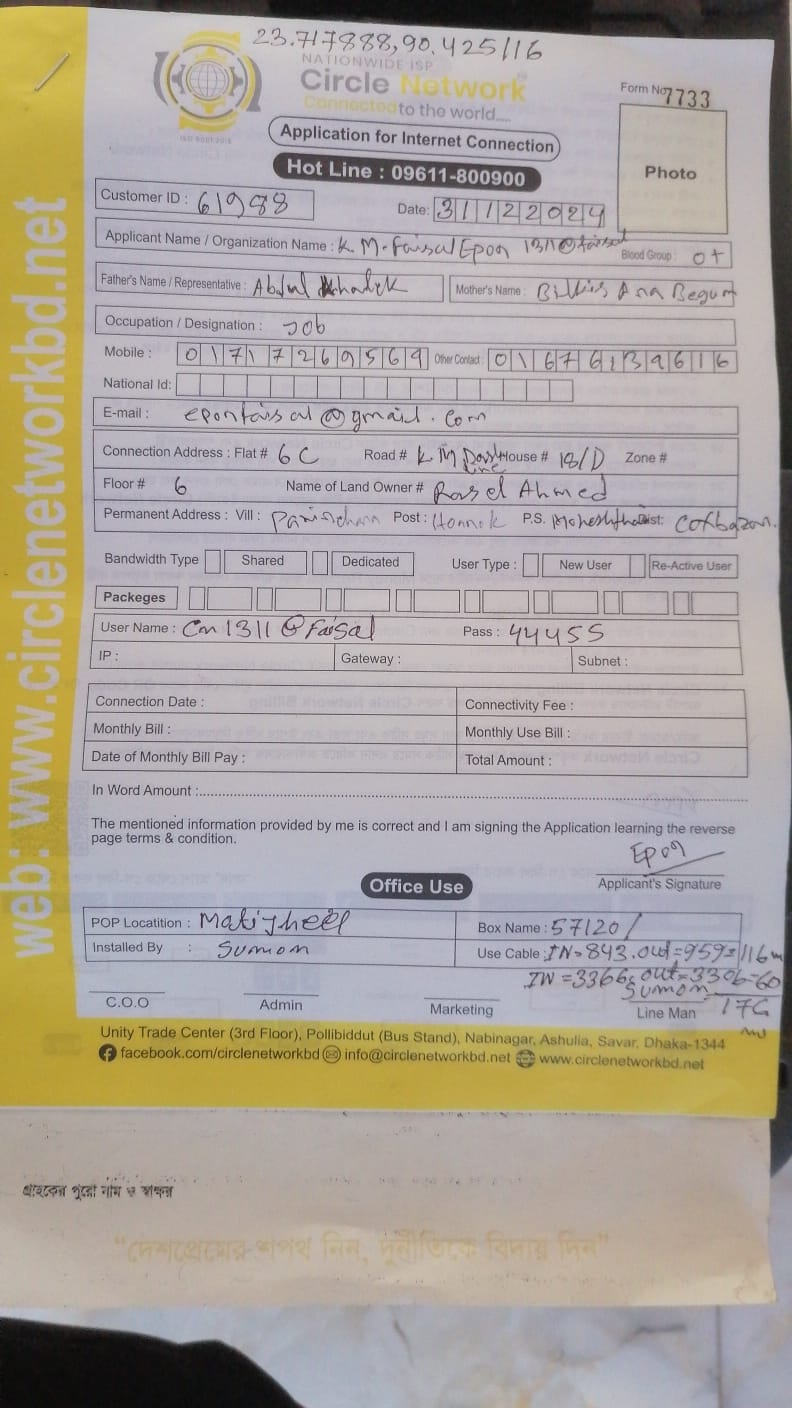 23.717888,90.425116
NATIONWIDE ISP
Circle Network
Connected to the world....
ISO 9001:2015
Form No 7733
Application for Internet Connection
Hot Line : 09611-800900
Photo
Customer ID : 61988
Date: 31122024
Applicant Name / Organization Name : K. M. Faisal Epon 1311@faisal
Blood Group : O+
Father's Name / Representative : Abdul Khalek
Mother's Name : Ara Begum
Occupation / Designation : Job
Mobile : 01717269569 Other Contact : 01676139616
National Id:
E-mail : eponfaisal@gmail.com
Connection Address : Flat # 6C Road # K M Das Line House # 18/D Zone #
Floor # 6 Name of Land Owner # Rasel Ahmed
Permanent Address : Vill : Post : P.S. Dist:
Bandwidth Type Shared Dedicated User Type : New User Re-Active User
Packeges
User Name : Cn1311@faisal Pass : 44455
IP : Gateway : Subnet :
Connection Date : Connectivity Fee :
Monthly Bill : Monthly Use Bill :
Date of Monthly Bill Pay : Total Amount :
In Word Amount :
The mentioned information provided by me is correct and I am signing the Application learning the reverse
page terms & condition.
Epon
Applicant's Signature
Office Use
POP Locatition : Matijheel Box Name : 57120/
Installed By : Sumon Use Cable : IN=843. out=959=116m
IN=3366, out=3306=60
Sumon 176
C.O.O Admin Marketing Line Man
Unity Trade Center (3rd Floor), Pollibiddut (Bus Stand), Nabinagar, Ashulia, Savar, Dhaka-1344
facebook.com/circlenetworkbd info@circlenetworkbd.net www.circlenetworkbd.net
web: www.circlenetworkbd.net
গ্রাহকের পুরো নাম ও স্বাক্ষর
“দেশপ্রেমের শপথ নিন, দুর্নীতিকে বিদায় দিন”